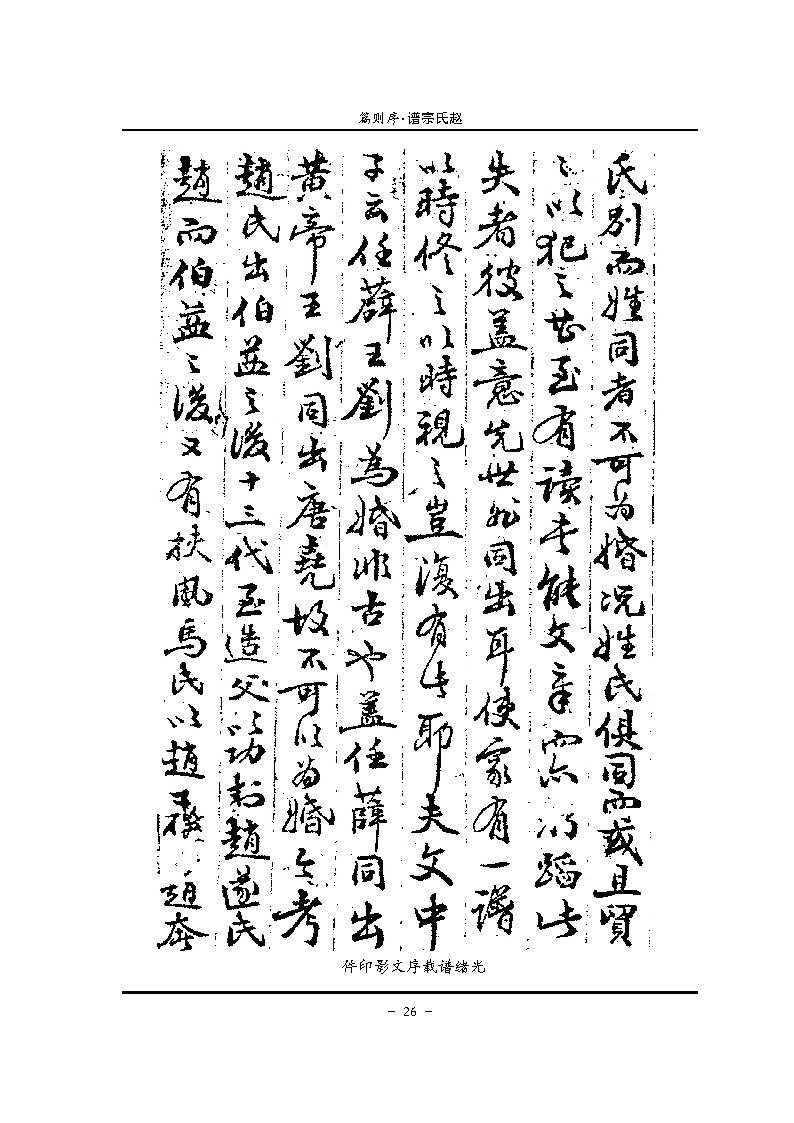 篇则序·谱宗氏赵
氏别而姓同者不可为婚况姓氏俱同而或且贸
以犯之甚至有读书能文章而亦蹈此
失者彼盖意先世非同出耳使家有一谱
以時修之以時視之豈復有此耶夫文中
子云任薛王劉為婚非古也盖任薛同出
黄帝王劉同出唐堯故不可以為婚今考
趙氏出伯益之後十三代至造父以功封趙遂氏
趙而伯益之後又有扶風馬氏以趙奢
件印影文序载谱绪光
- 26 -